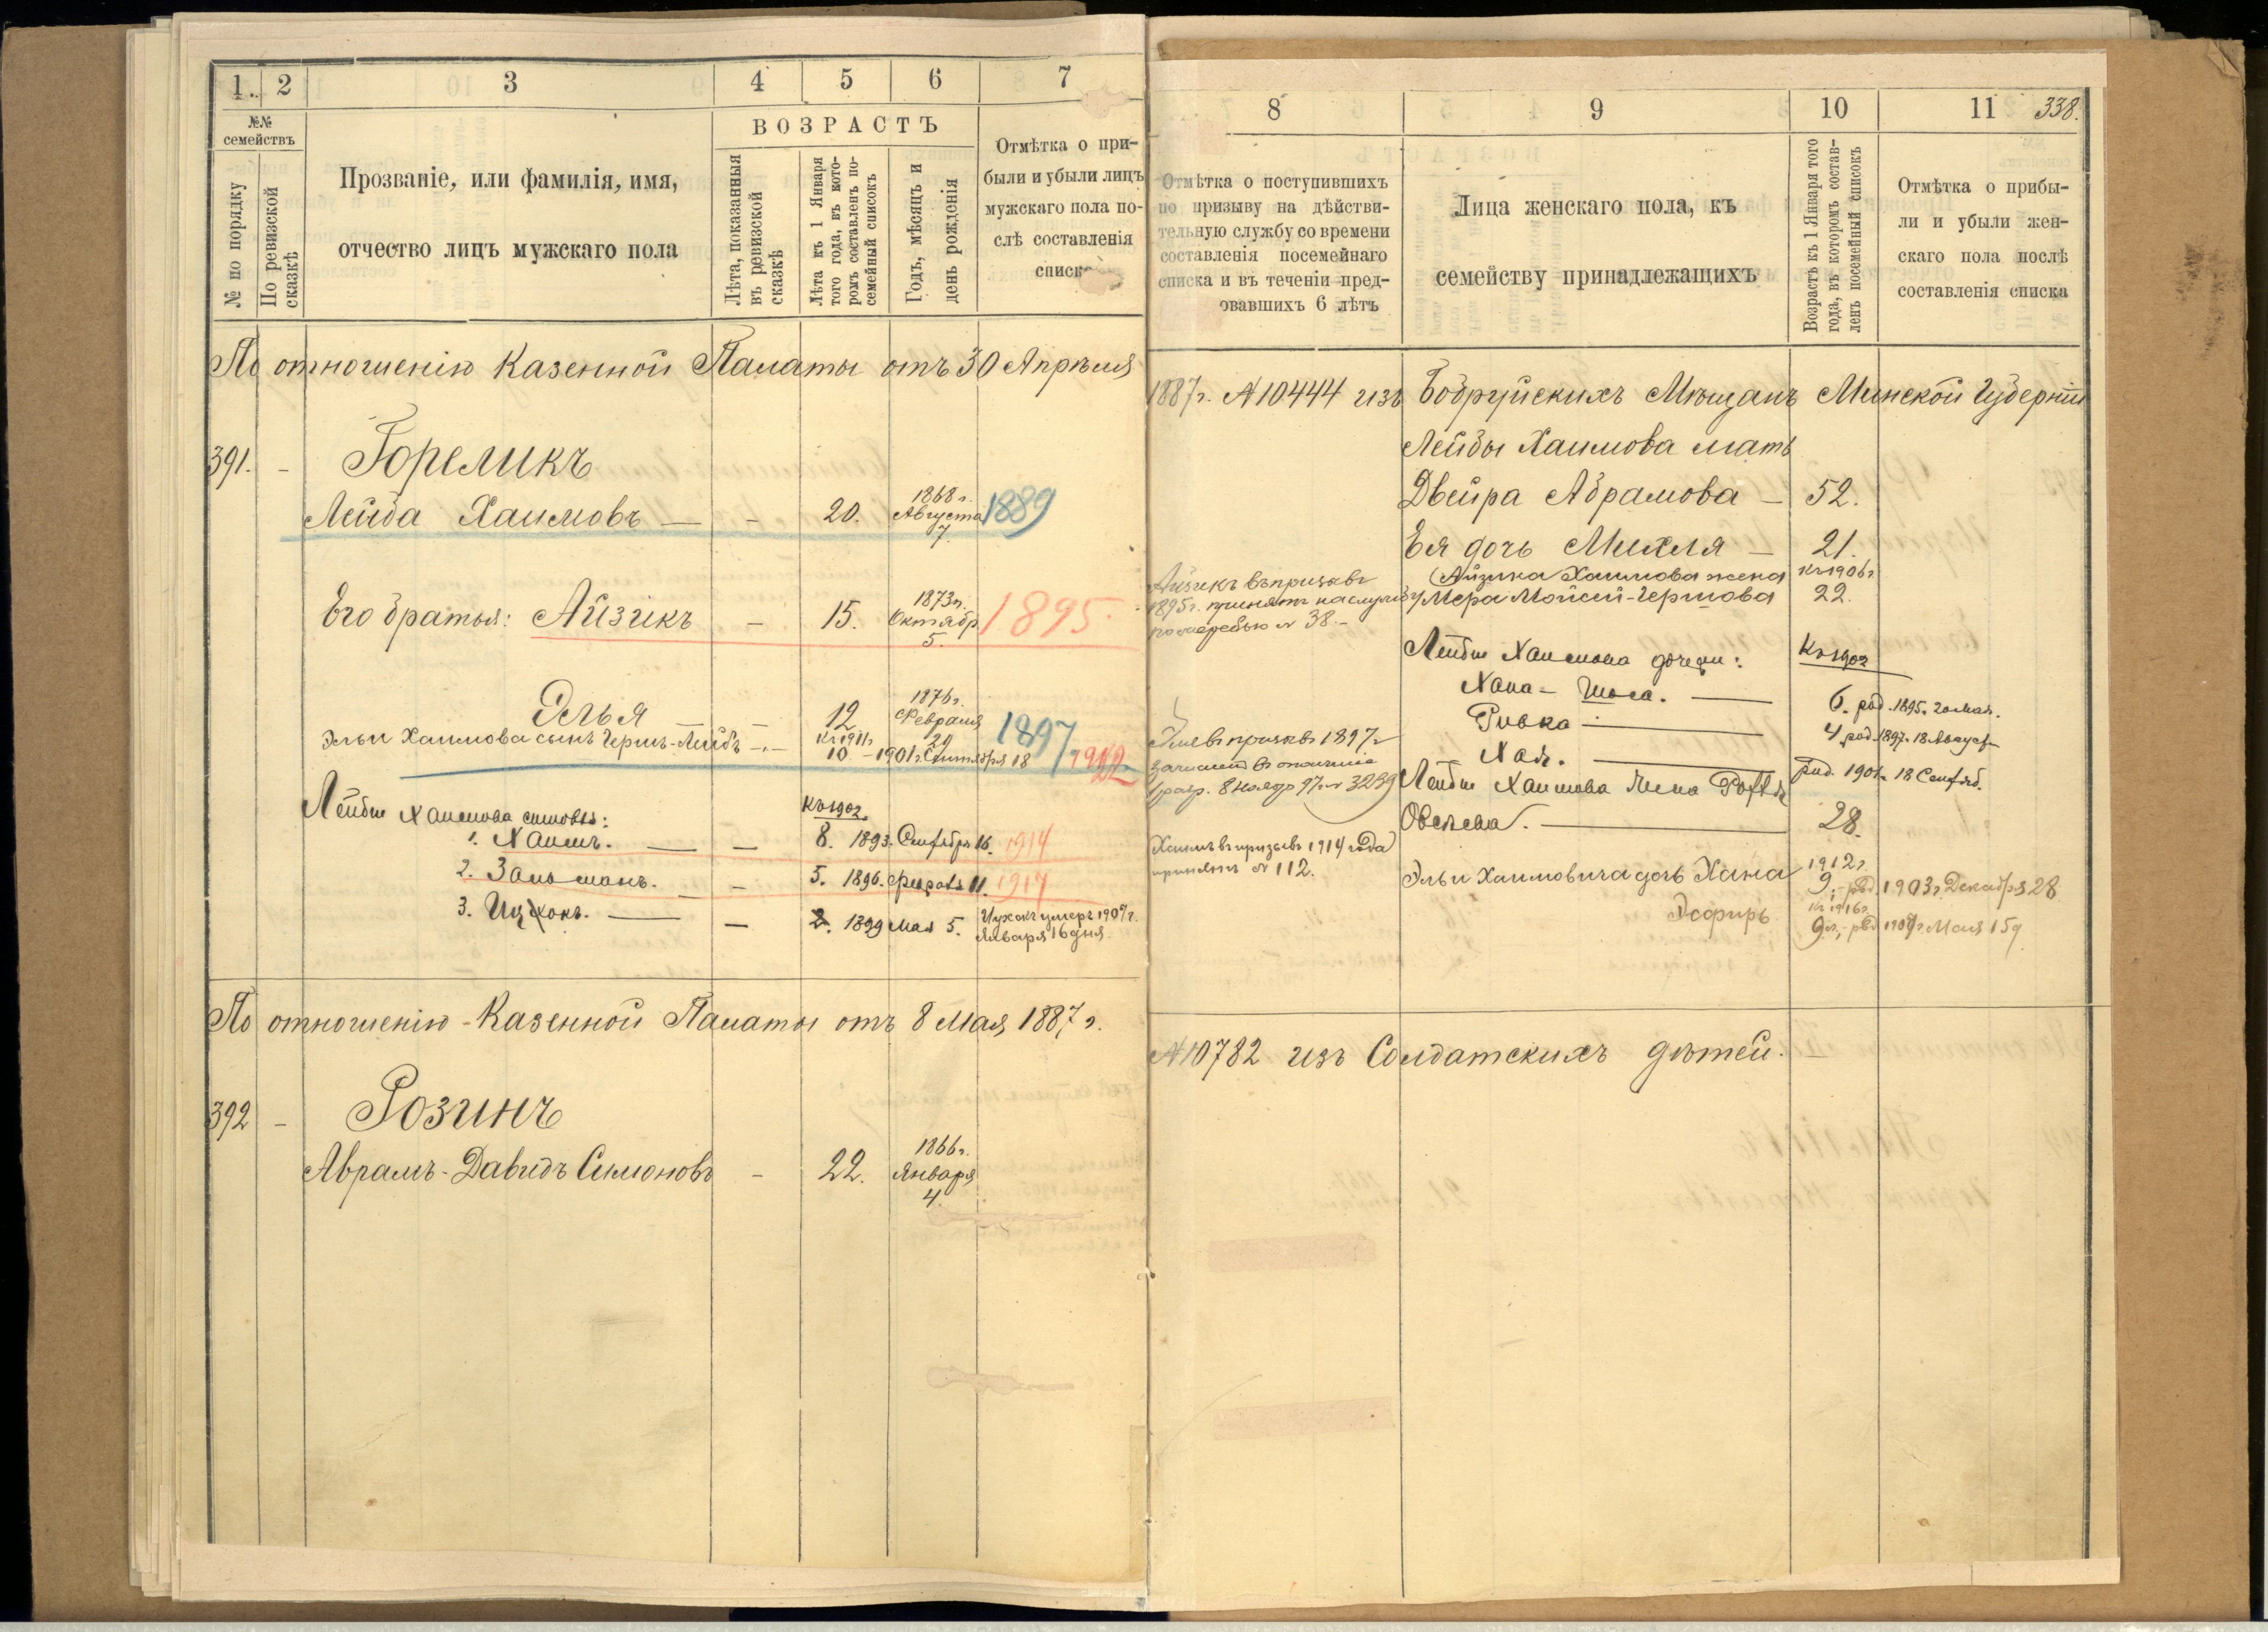 1. 2 3 4 5 6 7
№№ семействъ
№ по порядку
По ревизской сказкѣ
Прозваніе, или фамилія, имя,
отчество лицъ мужскаго пола
ВОЗРАСТЪ
Лѣта, показанныя
въ ревизской
сказкѣ
Лѣта къ 1 Января
того года, въ кото-
ромъ составленъ по-
семейный списокъ
Годъ, мѣсяцъ и
день рожденія
Отмѣтка о при-
были и убыли лицъ
мужскаго пола по-
слѣ составленія
списка
По отношенію Казенной Палаты отъ 30 Апрѣля
391. - Гореликъ
Лейба Хаимовъ — - 20. 1868 г. Августа 7. 1889
Его братья: Айзикъ - 15. 1873 г. Октябр 5. 1895.
Элья — - 12 1876 г. Февраля 20 1897
Эльи Хаимова сынъ Гершъ-Лейбъ -.- Къ 1911 г. 10 - 1901 г. Сентября 18 1922
Лейбы Хаимова сыновья: Къ 1902.
1. Хаимъ. — - 8. 1893. Сентября 16. 1914
2. Залманъ. — - 5. 1896. Февраля 11. 1917
3. Ицхокъ. — - 2. 1899 Мая 5. Ицхокъ умеръ 1907 г.
Января 16 дня
По отношенію Казенной Палаты отъ 8 Мая 1887 г.
392 - Розинъ
Аврамъ-Давидъ Симоновъ - 22. 1866 г. Января 4.
8 9 10 11 338.
Отмѣтка о поступившихъ
по призыву на дѣйстви-
тельную службу со времени
составленія посемейнаго
списка и въ теченіи пред-
овавшихъ 6 лѣтъ
Лица женскаго пола, къ
семейству принадлежащихъ
Возрастъ къ 1 Января того
года, въ которомъ состав-
ленъ посемейный списокъ
Отмѣтка о прибы-
ли и убыли жен-
скаго пола послѣ
составленія списка
1887 г. № 10444 изъ Бобруйскихъ Мѣщанъ Минской Губерніи
Лейбы Хаимова мать
Двейра Абрамова — 52.
Ея дочь Михля — 21.
Айзикъ въ призывъ
1895 г. принятъ на службу
по жеребью № 38.-
(Айзика Хаимова жена Къ 1906 г.
Мера Мойсей-Гершова 22.
Лейбы Хаимова дочери: Къ 1902
Хана- — 6. род. 1895. 20 Мая.
Ривка — 4 род. 1897. 18 Август
Хая. — род. 1901. 18 Сентяб.
въ призывъ 1897 г.
зачисленъ въ ополченіе
8 Нояб 97 г. № 3239
Лейбы Хаимова жена
Овсеева. — 28.
Хаимъ въ призывъ 1914 года
принятъ № 112.
Эльи Хаимовича дочь Хана 1912 г. 9.- род. 1903 г. Декабря 28
Эсфирь Къ 1916 г. 9 л.,- род. 1909 г. Мая 15 д
№ 10782 изъ Солдатскихъ дѣтей. —